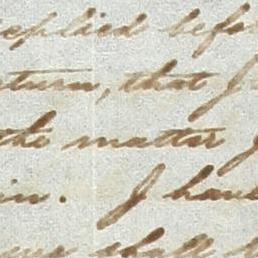 replied befo
return, that I
the matter I
in. I have
shall